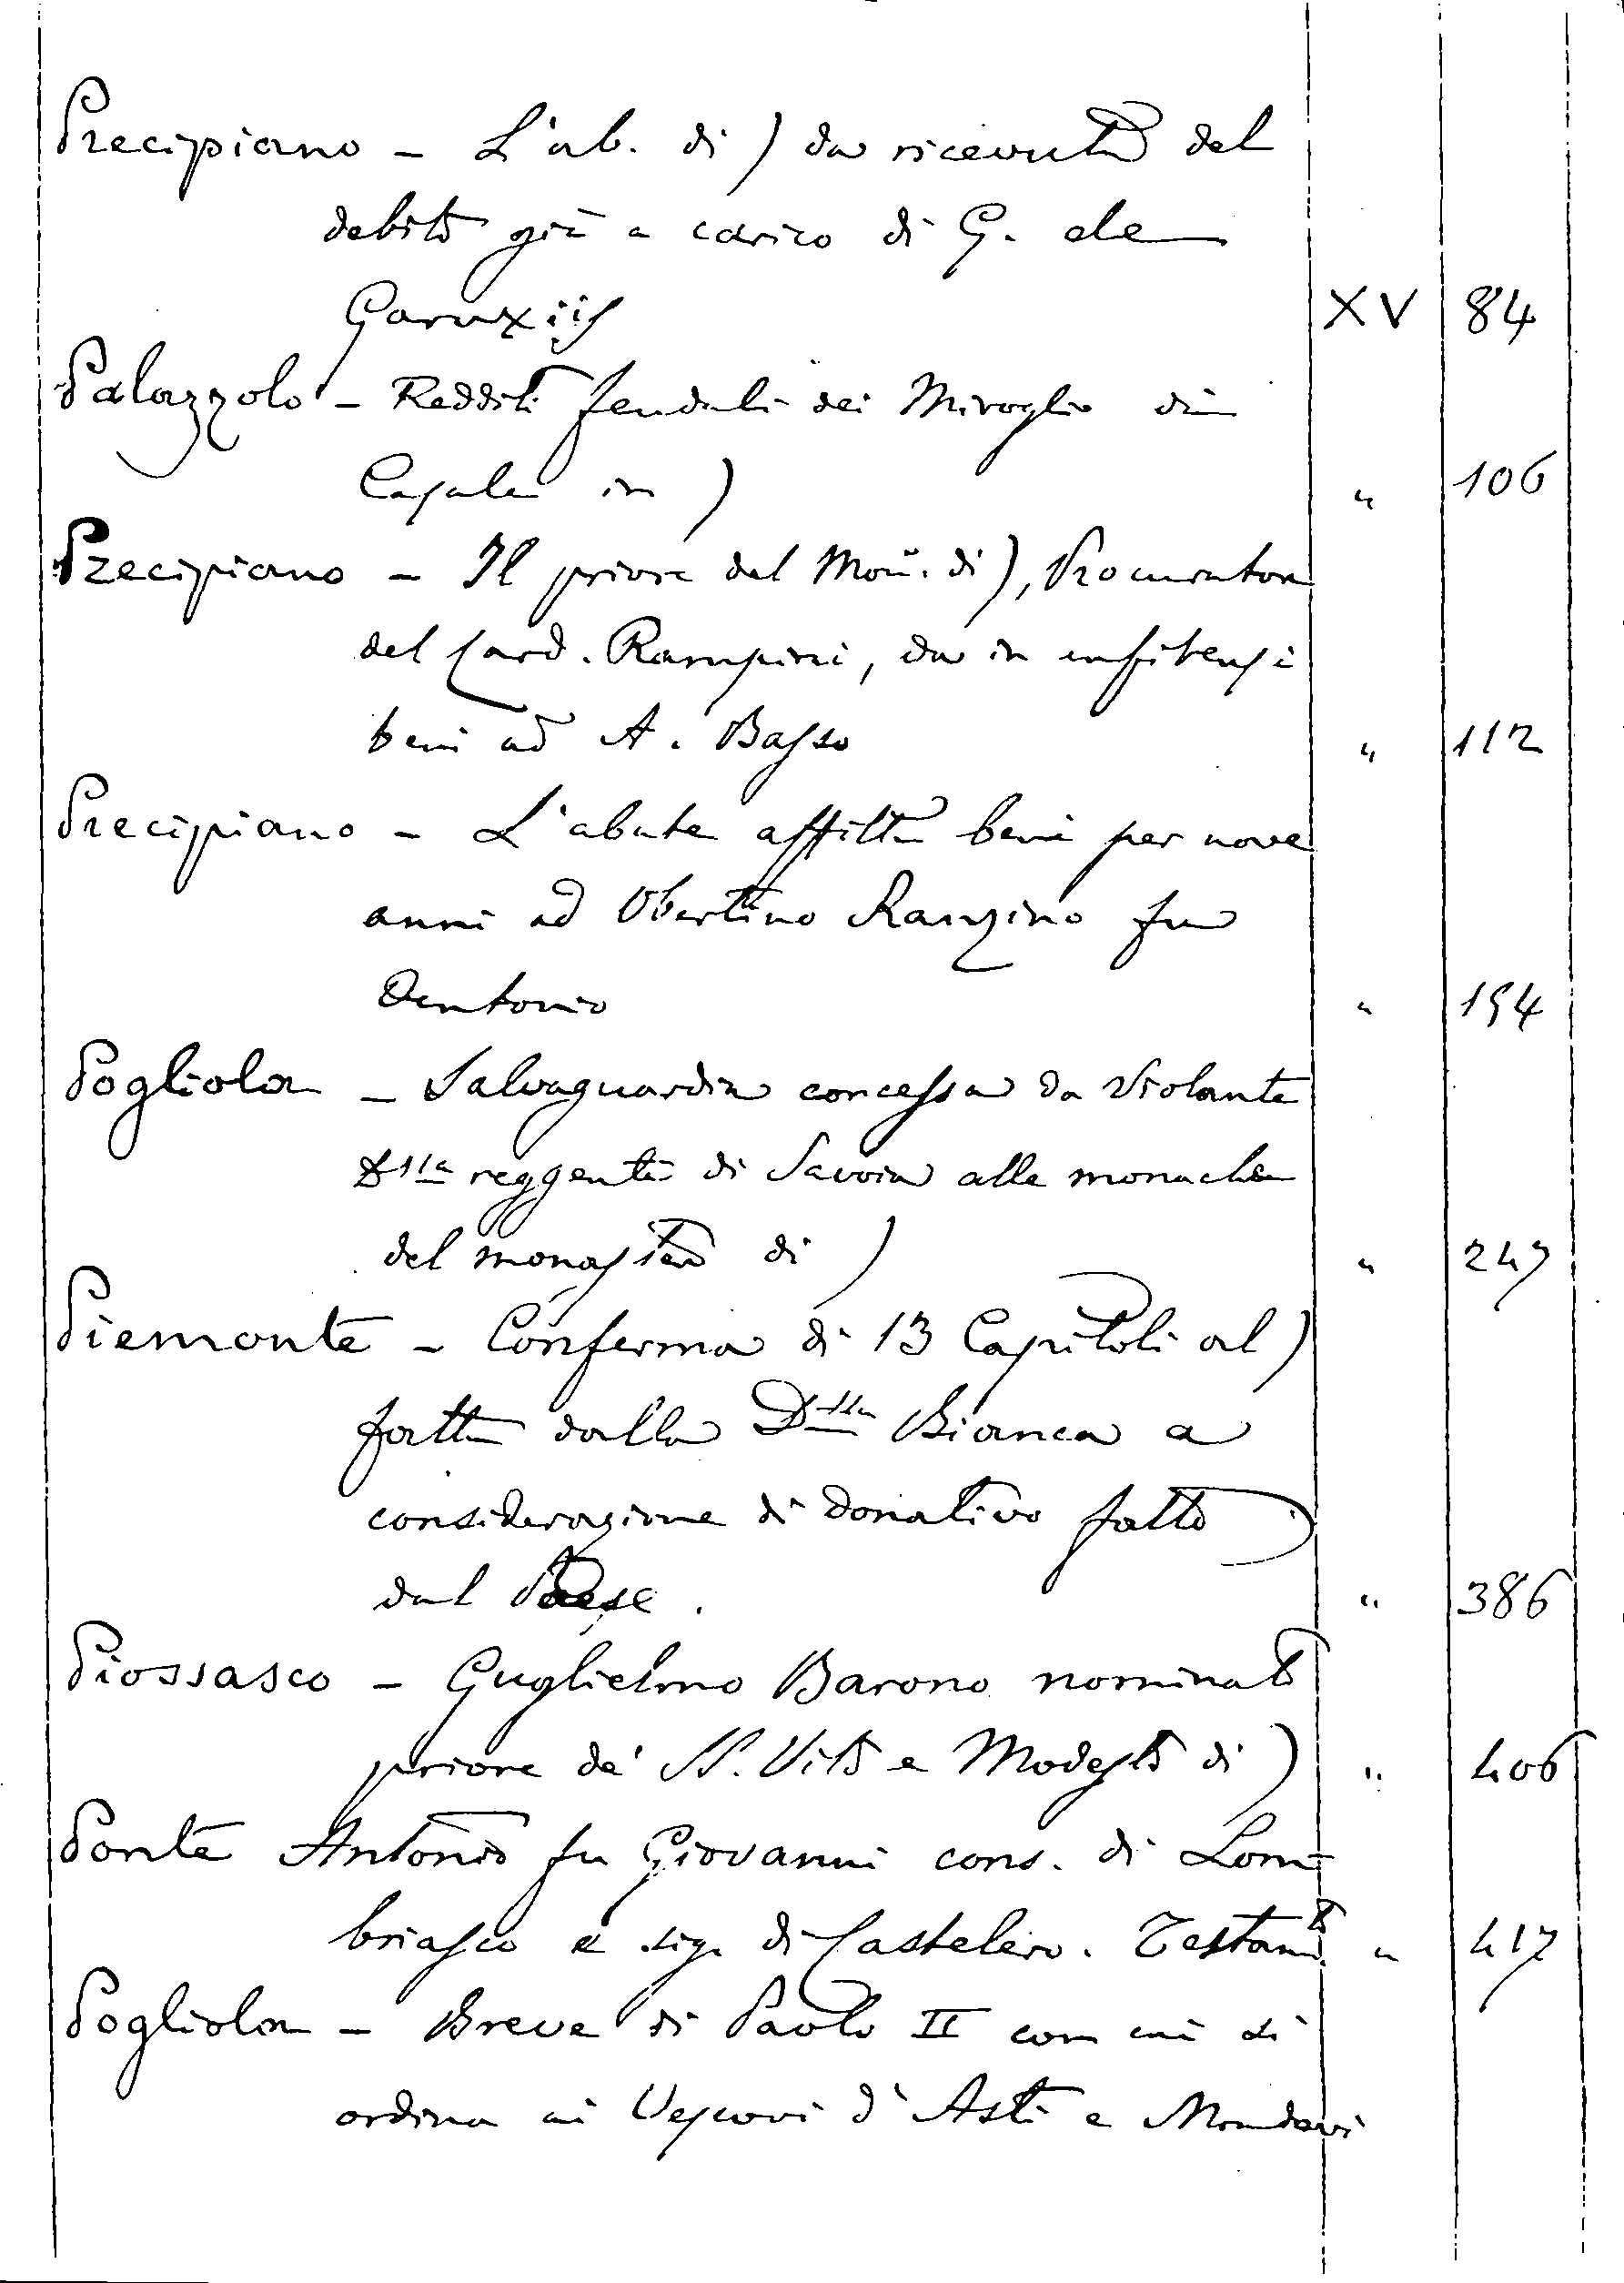 Precipiano - L'ab. di ) da ricevuta del
debito già a carico di G. de
Garuxiis XV 84
Palazzolo - Redditi feudali dei Miroglio di
Casale in ) " 106
Precipiano - Il priore del Mon. di ), Procuratore
del Card. Rampini, da in enfitensi
beni ad A. Basso " 112
Precipiano - L'abate affitta beni per nove
anni ad Obertino Ranzino fu
Antonio " 194
Pogliola - Salvaguardia concessa da Violante
D.ssa reggente di Savoia alle monache
del monastero di ) " 247
Piemonte - Conferma di 13 Capitoli al )
fatta dalla D.ssa Bianca a
considerazione di donativo fatto
dal Paese. " 386
Piossasco - Guglielmo Barono nominato
priore de' SS. Vito e Modesto di ) " 406
Ponte Antonio fu Giovanni cons. di Lom-
briasco e sig. di Castelero. Testam.to " 417
Pogliola - Breve di Paolo II con cui si
ordina ai Vescovi d'Asti e Mondovi